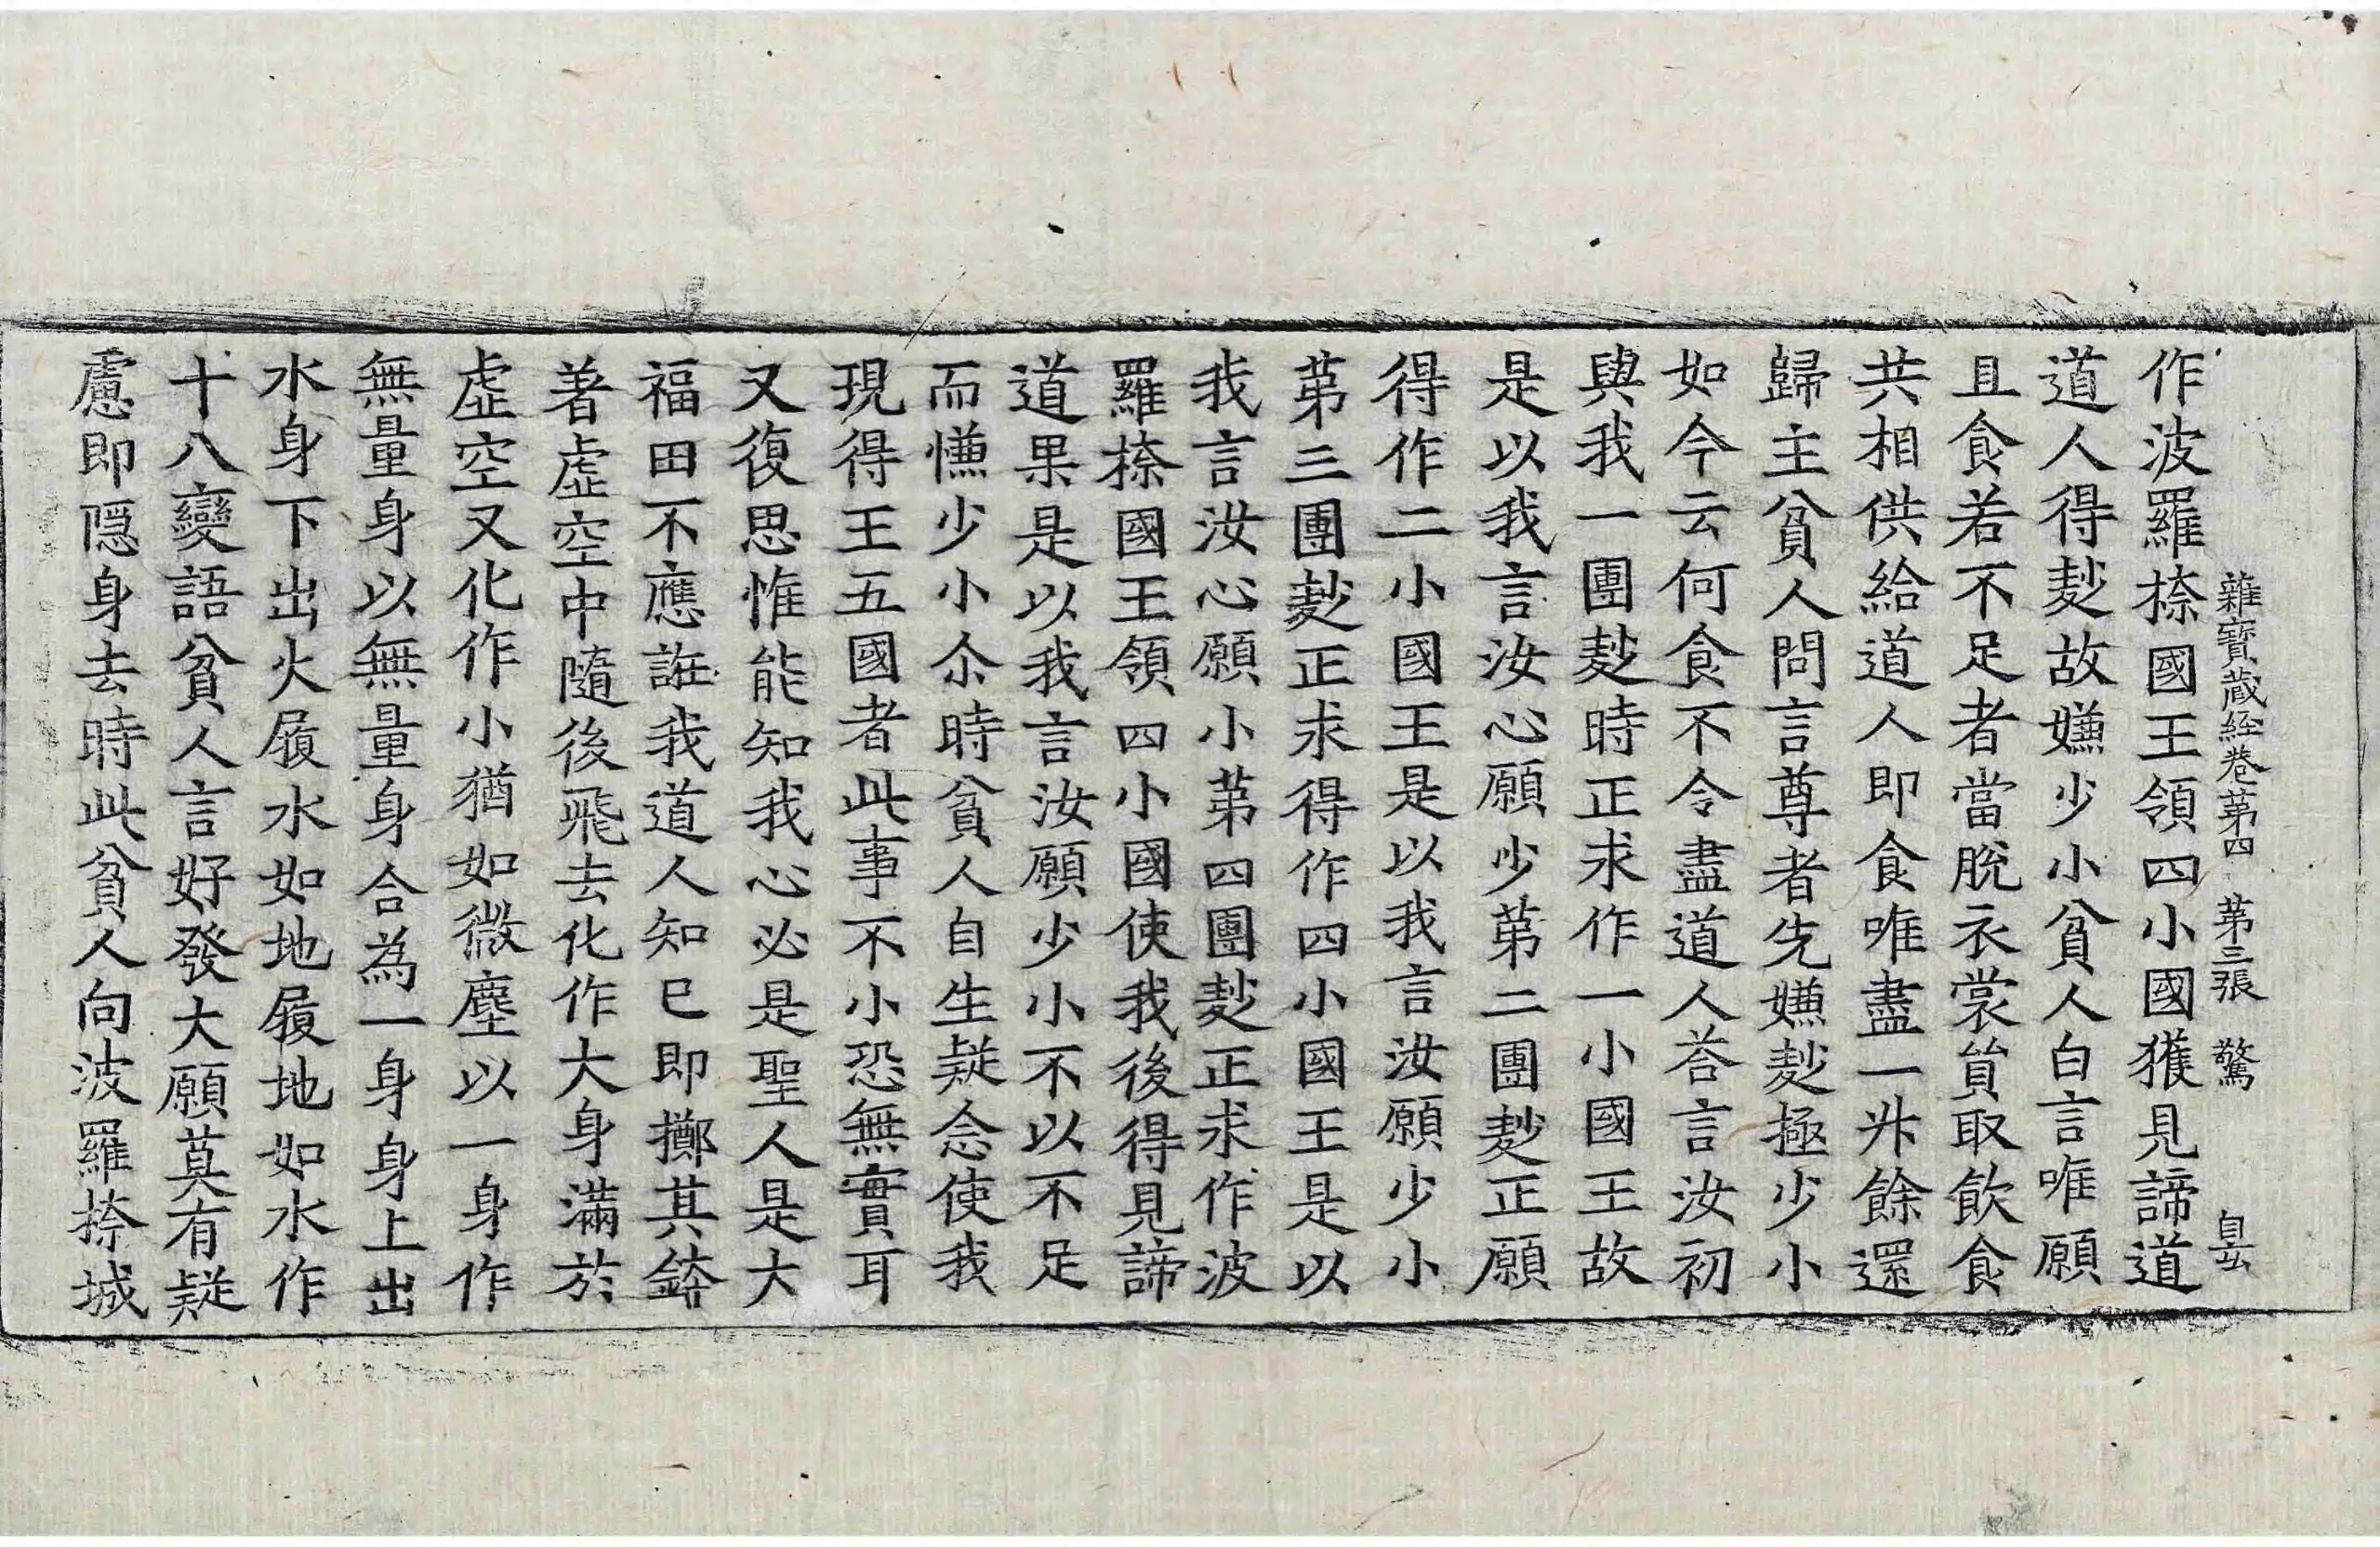 雜寶藏經卷苐四 苐三張 驚
作波羅㮈國王領四小國獲見諦道
道人得麨故嫌少小貧人白言唯願
且食若不足者當脫衣裳貿取飲食
共相供給道人即食唯盡一升餘還
歸主貧人問言尊者先嫌麨極少小
如今云何食不令盡道人荅言汝初
與我一團麨時正求作一小國王故
是以我言汝心願少苐二團麨正願
得作二小國王是以我言汝願少小
苐三團麨正求得作四小國王是以
我言汝心願小苐四團麨正求作波
羅㮈國王領四小國使我後得見諦
道果是以我言汝願少小不以不足
而慊少小尒時貧人自生疑念使我
現得王五國者此事不小恐無實耳
又復思惟能知我心必是聖人是大
福田不應誑我道人知已即擲其鉢
著虛空中隨後飛去化作大身滿於
虛空又化作小猶如微塵以一身作
無量身以無量身合為一身身上出
水身下出火履水如地履地如水作
十八變語貧人言好發大願莫有疑
慮即隱身去時此貧人向波羅㮈城